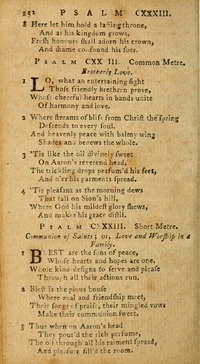 252 PSALM CXXXIII.
8 Here let him hold a lasting throne,
And as his kingdom grows,
Fresh honours shall adorn his crown,
And shame confound his foes.
PSALM CXXXIII. Common Metre.
Brotherly Love.
1 LO, what an entertaining sight
Those friendly brethren prove,
Whose cheerful hearts in bands unite
Of harmony and love.
2 Where streams of bliss from Christ the spring
Descends to every soul,
And heavenly peace with balmy wing
Shades and bedews the whole.
3 'Tis like the oil divinely sweet
On Aaron's reverend head,
The trickling drops perfum'd his feet,
And o'er his garments spread.
4 'Tis pleasant as the morning dews
That fall on Sion's hill,
Where God his mildest glory shews,
And makes his grace distil.
PSALM CXXXIII. Short Metre.
Communion of Saints; or, Love and Worship in a
Family.
1 BEST are the sons of peace,
Whose hearts and hopes are one,
Whose kind designs to serve and please
Through all their actions run.
2 Blest is the pious house
Where zeal and friendship meet,
Their songs of praise, their mingled vows
Make their communion sweet.
3 Thus when on Aaron's head
They pour'd the rich perfume,
The oil through all his raiment spread,
And pleasure fill'd the room.